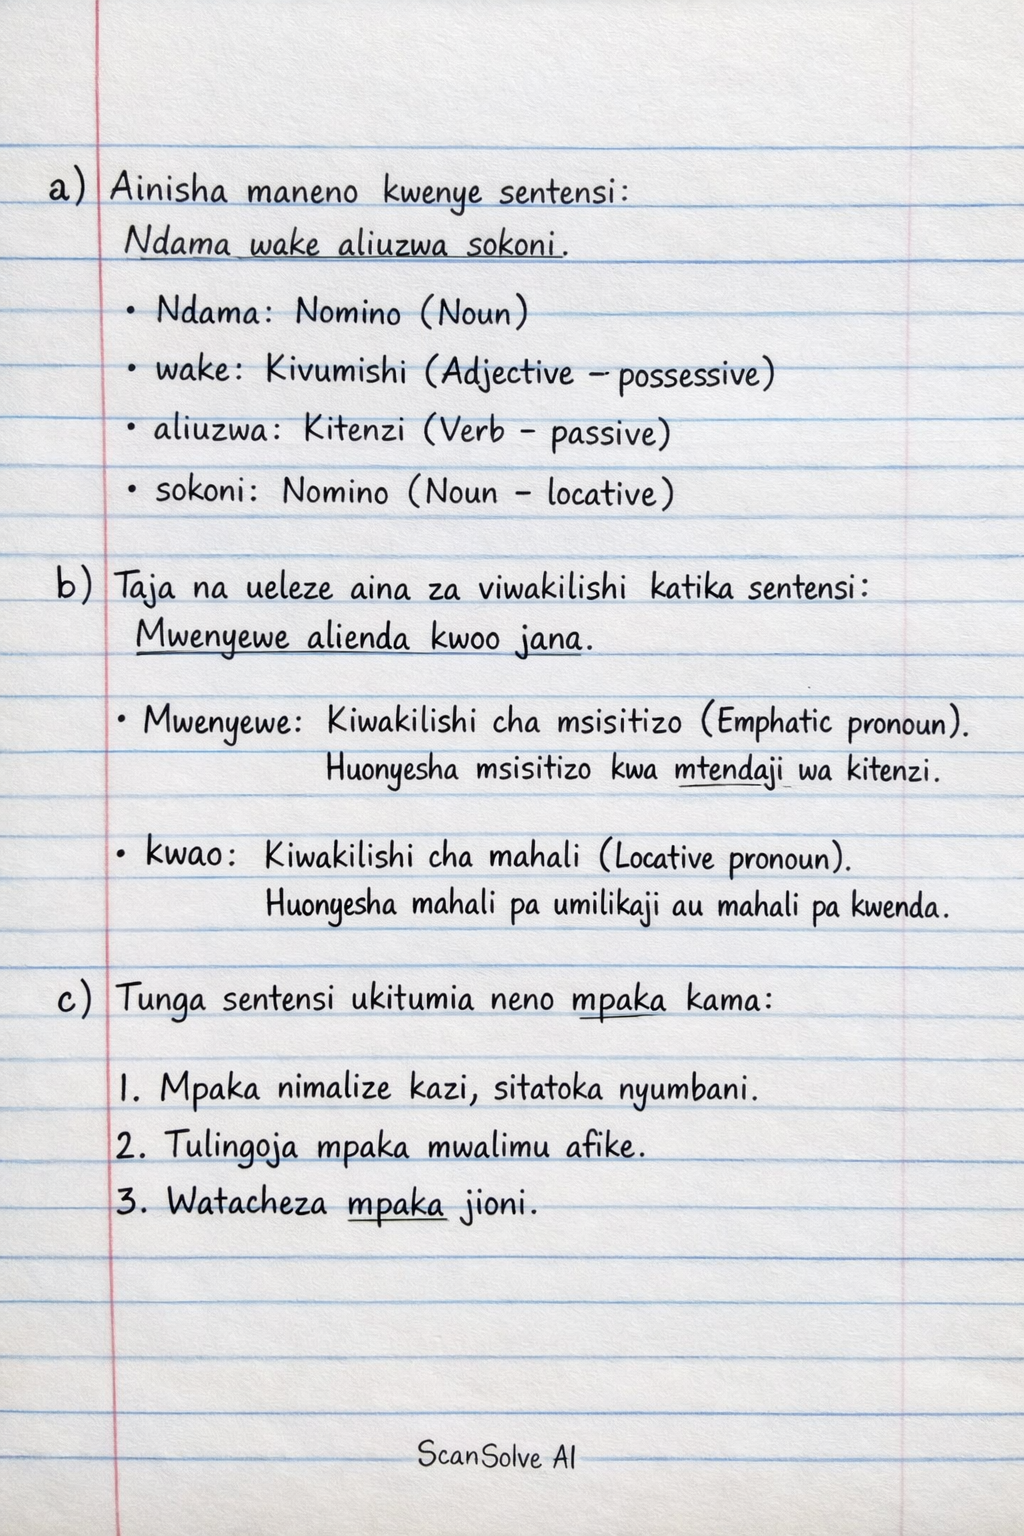 a) Ainisha maneno kwenye sentensi:
Ndama wake aliuzwa sokoni.
• Ndama: Nomino (Noun)
• wake: Kivumishi (Adjective – possessive)
• aliuzwa: Kitenzi (Verb – passive)
• sokoni: Nomino (Noun – locative)
b) Taja na ueleze aina za viwakilishi katika sentensi:
Mwenyewe alienda kwoo jana.
• Mwenyewe: Kiwakilishi cha msisitizo (Emphatic pronoun).
Huonyesha msisitizo kwa mtendaji wa kitenzi.
• kwao: Kiwakilishi cha mahali (Locative pronoun).
Huongesha mahali pa umilikaji au mahali pa kwenda.
c) Tunga sentensi ukitumia neno mpaka kama:
1. Mpaka nimalize kazi, sitatoka nyumbani.
2. Tulingoja mpaka mwalimu afike.
3. Watacheza mpaka jioni.
ScanSolve AI